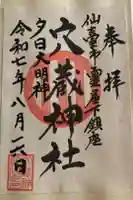 奉拝
仙臺市霊屋下鎮座
穴蔵神社
夕日大明神
令和七年八月二六日